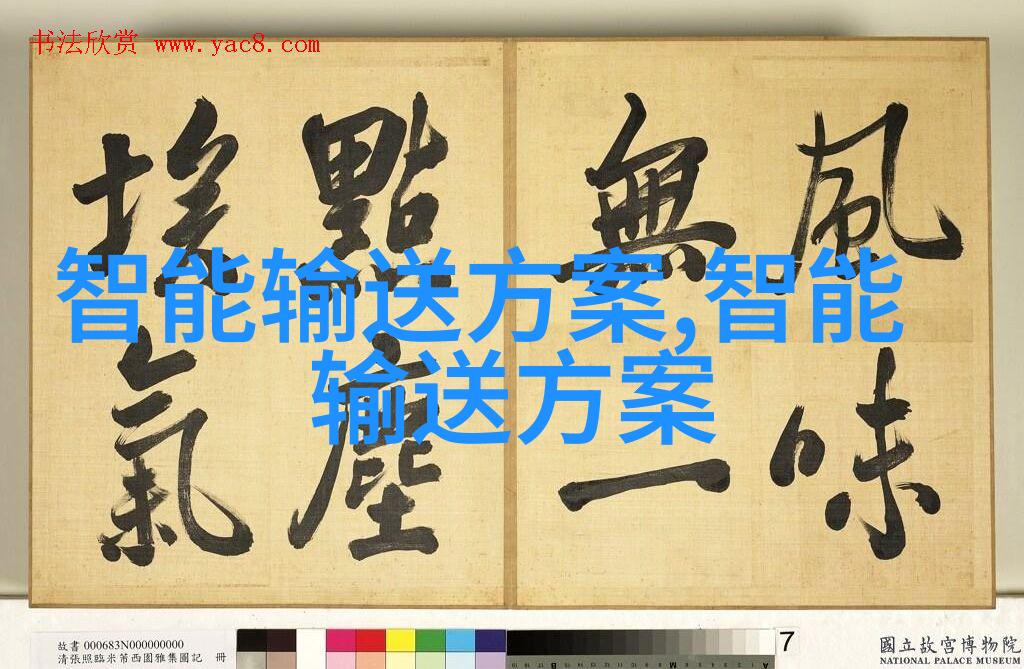 书法欣赏 www.yac8.com
風味
無一
點塵
埃氣
智能输送方案,智能
输送方案
故書 000683N000000000
清張照臨米芾西園雅集圖記 冊
7
國立故宮博物院
NATIONAL PALACE MUSEUM